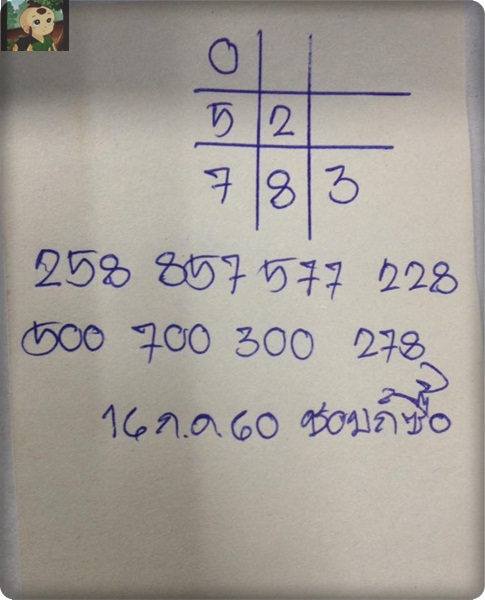 0
5 2
7 8 3
258 857 577 228
500 700 300 278
16 ก.ค.60 ชอบก็ซื้อ